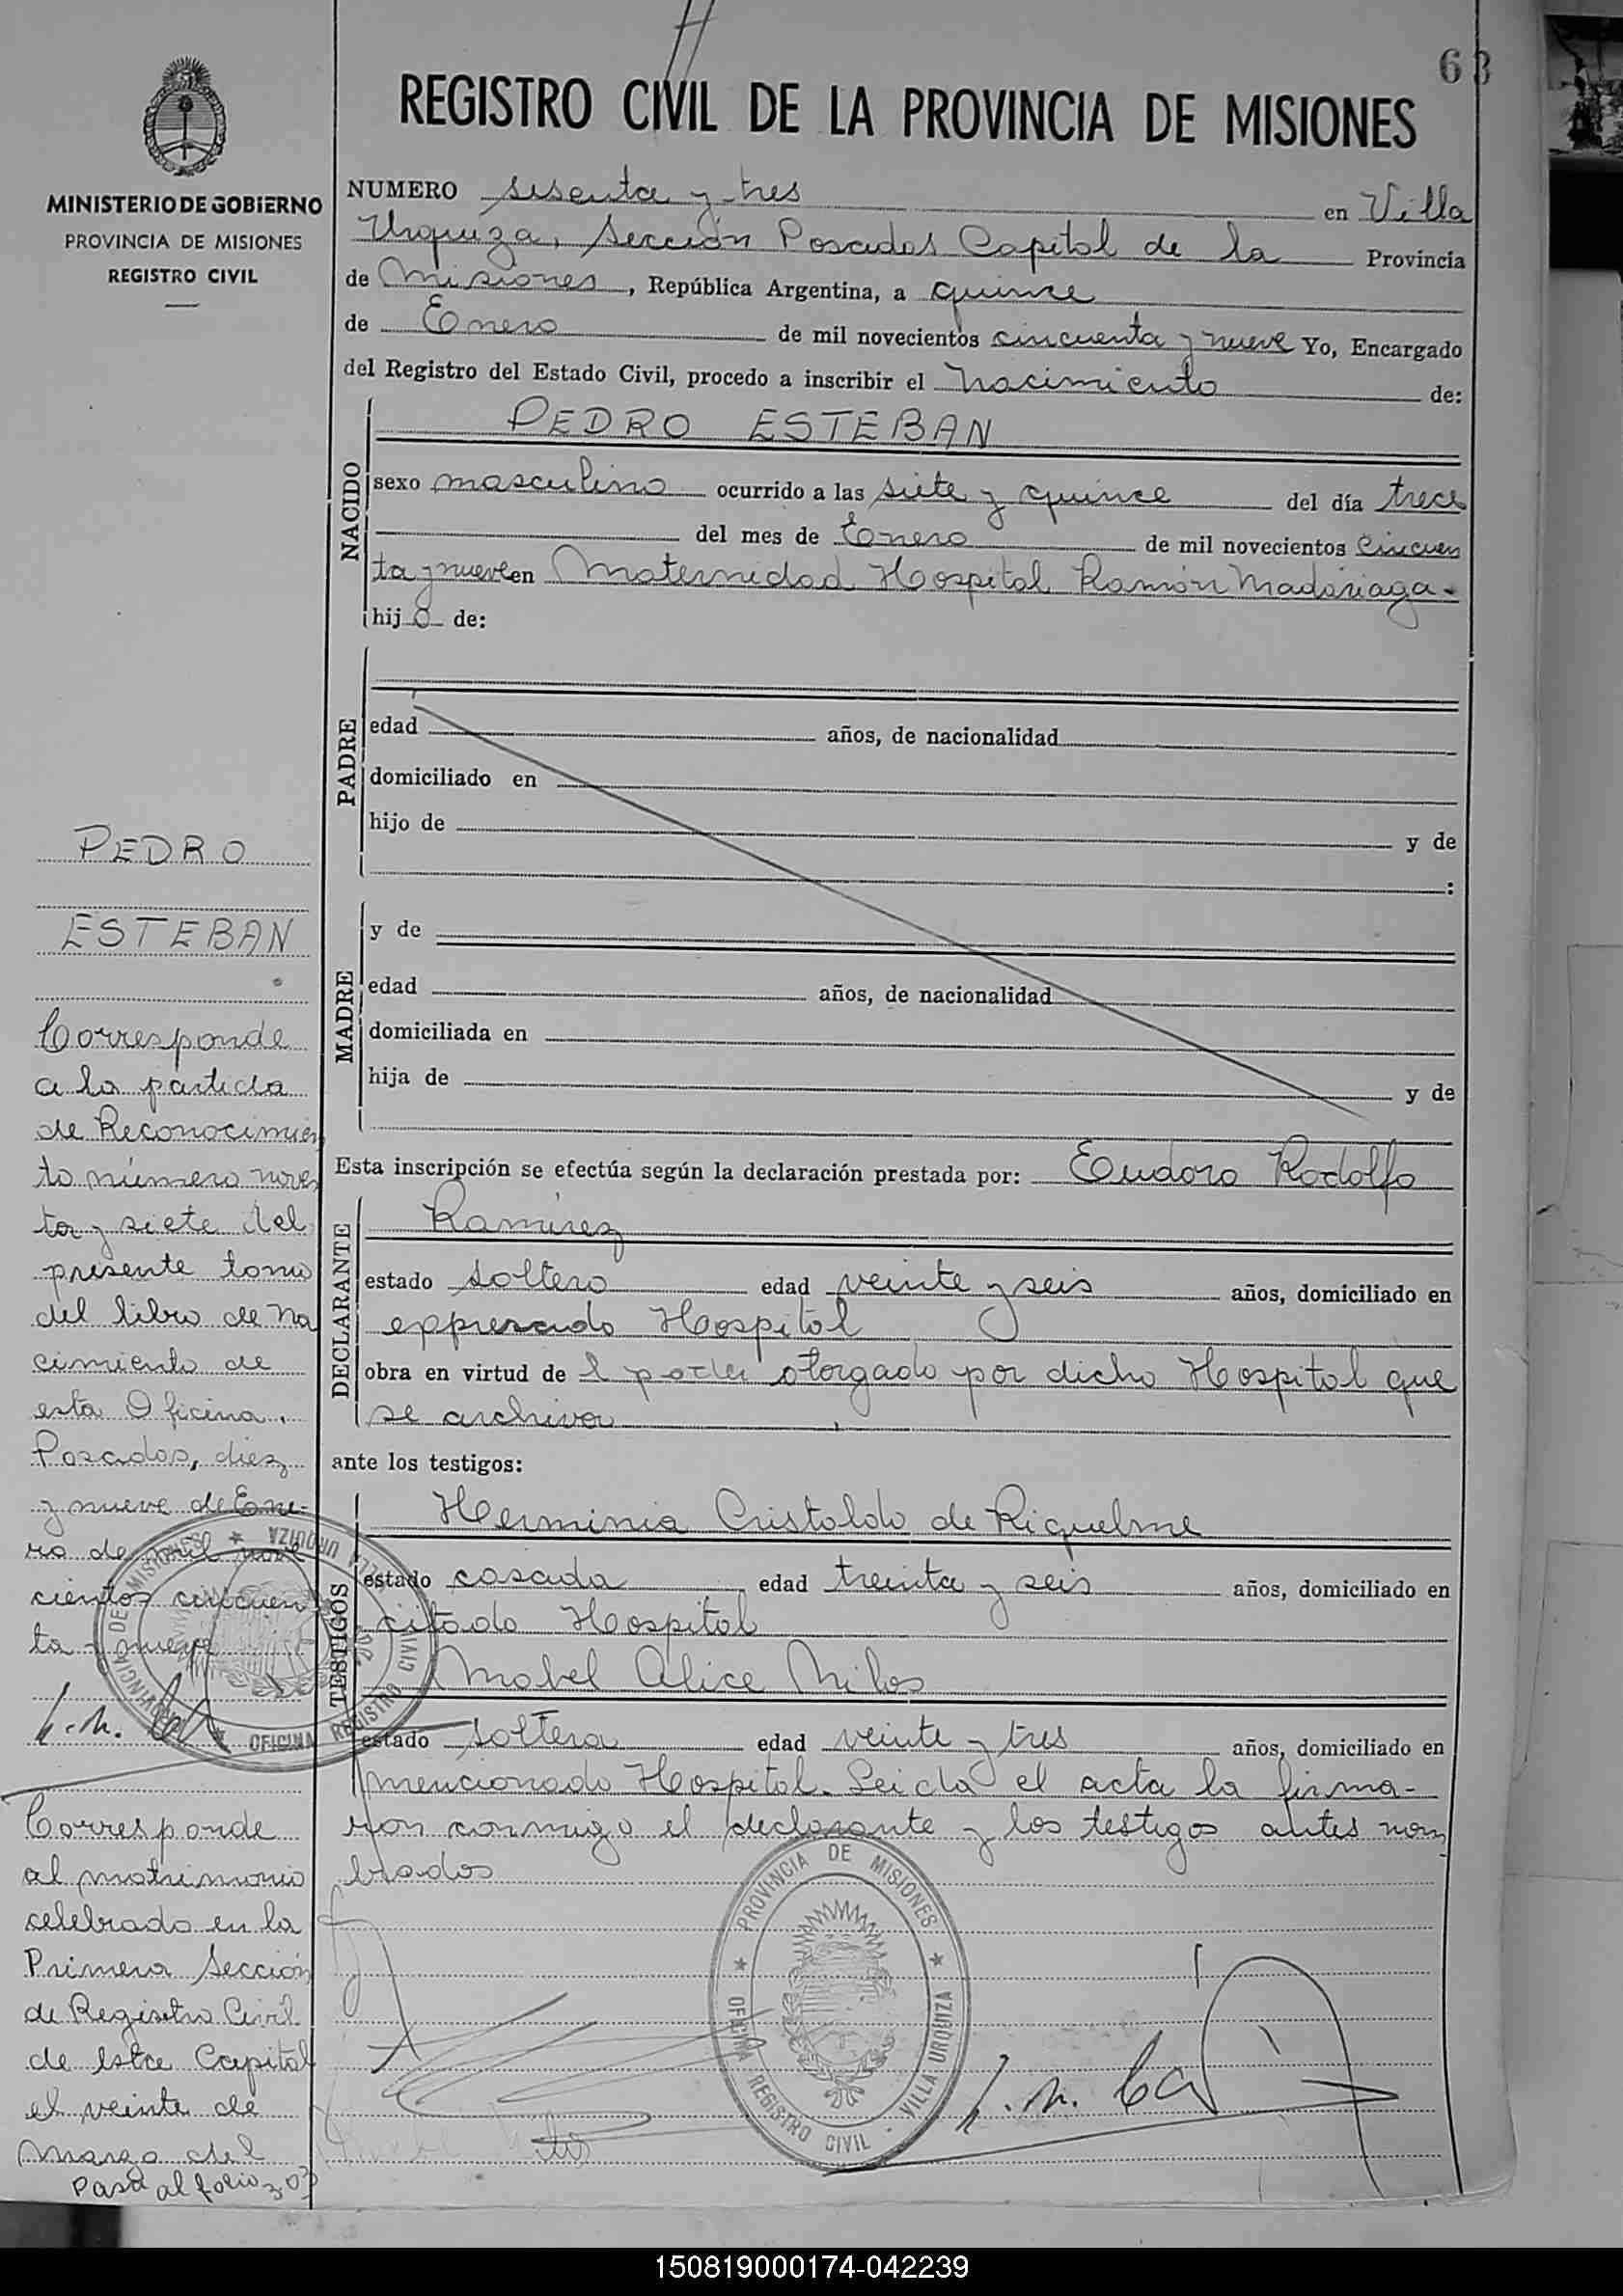 63
REGISTRO CIVIL DE LA PROVINCIA DE MISIONES
MINISTERIO DE GOBIERNO
PROVINCIA DE MISIONES
REGISTRO CIVIL
NUMERO sesenta y tres en Villa
Urquiza, Sección Posadas Capital de la Provincia
de Misiones, República Argentina, a quince
de Enero de mil novecientos cincuenta y nueve Yo, Encargado
del Registro del Estado Civil, procedo a inscribir el nacimiento de:
NACIDO
PEDRO ESTEBAN
sexo masculino ocurrido a las siete y quince del día trece
del mes de Enero de mil novecientos cincuen
ta y nueve en Maternidad Hospital Ramón Madariaga.
hijo de:
PADRE
edad años, de nacionalidad
domiciliado en
hijo de y de
:
MADRE
y de
edad años, de nacionalidad
domiciliada en
hija de y de
Esta inscripción se efectúa según la declaración prestada por: Eudoro Rodolfo
DECLARANTE
Ramírez
estado soltero edad veinte y seis años, domiciliado en
eppresado Hospital
obra en virtud de l poder otorgado por dicho Hospital que
se archiva
ante los testigos:
TESTIGOS
Herminia Cristaldo de Riquelme
estado casada edad treinta y seis años, domiciliado en
citado Hospital
Mabel Alice Milos
estado soltera edad veinte y tres años, domiciliado en
mencionado Hospital. Leida el acta la firma-
ron conmigo el declarante y los testigos antes nom
brados
PROVINCIA DE MISIONES
OFICINA REGISTRO CIVIL - VILLA URQUIZA
PEDRO
ESTEBAN
Corresponde
a la partida
de Reconocimien
to número noven
ta y siete del
presente tomo
del libro de Na
cimiento de
esta Oficina.
Posadas, diez
y nueve de Ene-
ro de mil nove
cientos cincuen
ta y nueve
PROVINCIA DE MISIONES
OFICINA REGISTRO CIVIL VILLA URQUIZA
Corresponde
al matrimonio
celebrado en la
Primera Sección
de Registro Civil
de esta Capital
el veinte de
Marzo del
Pasa al folio 303
150819000174-042239